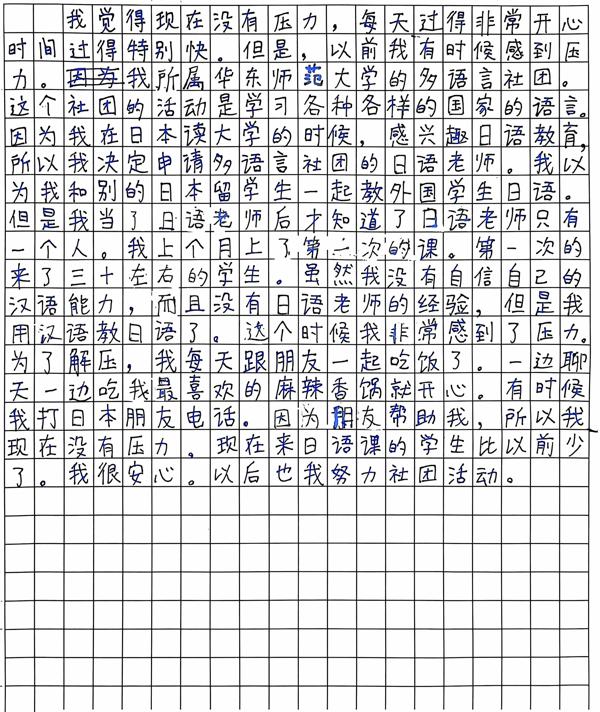 我觉得现在没有压力，每天过得非常开心
时间过得特别快。但是，以前我有时候感到压
力。因为我所属华东师范大学的多语言社团。
这个社团的活动是学习各种各样的国家的语言。
因为我在日本读大学的时候，感兴趣日语教育，
所以我决定申请多语言社团的日语老师。我以
为我和别的日本留学生一起教外国学生日语。
但是我当了日语老师后才知道了日语老师只有
一个人。我上个月上了第一次的课。第一次的
来了三十左右的学生。虽然我没有自信自己的
汉语能力，而且没有日语老师的经验，但是我
用汉语教日语了。这个时候我非常感到了压力。
为了解压，我每天跟朋友一起吃饭了。一边聊
天一边吃我最喜欢的麻辣香锅就开心。有时候
我打日本朋友电话。因为朋友帮助我，所以我
现在没有压力。现在来日语课的学生比以前少
了。我很安心。以后也我努力社团活动。